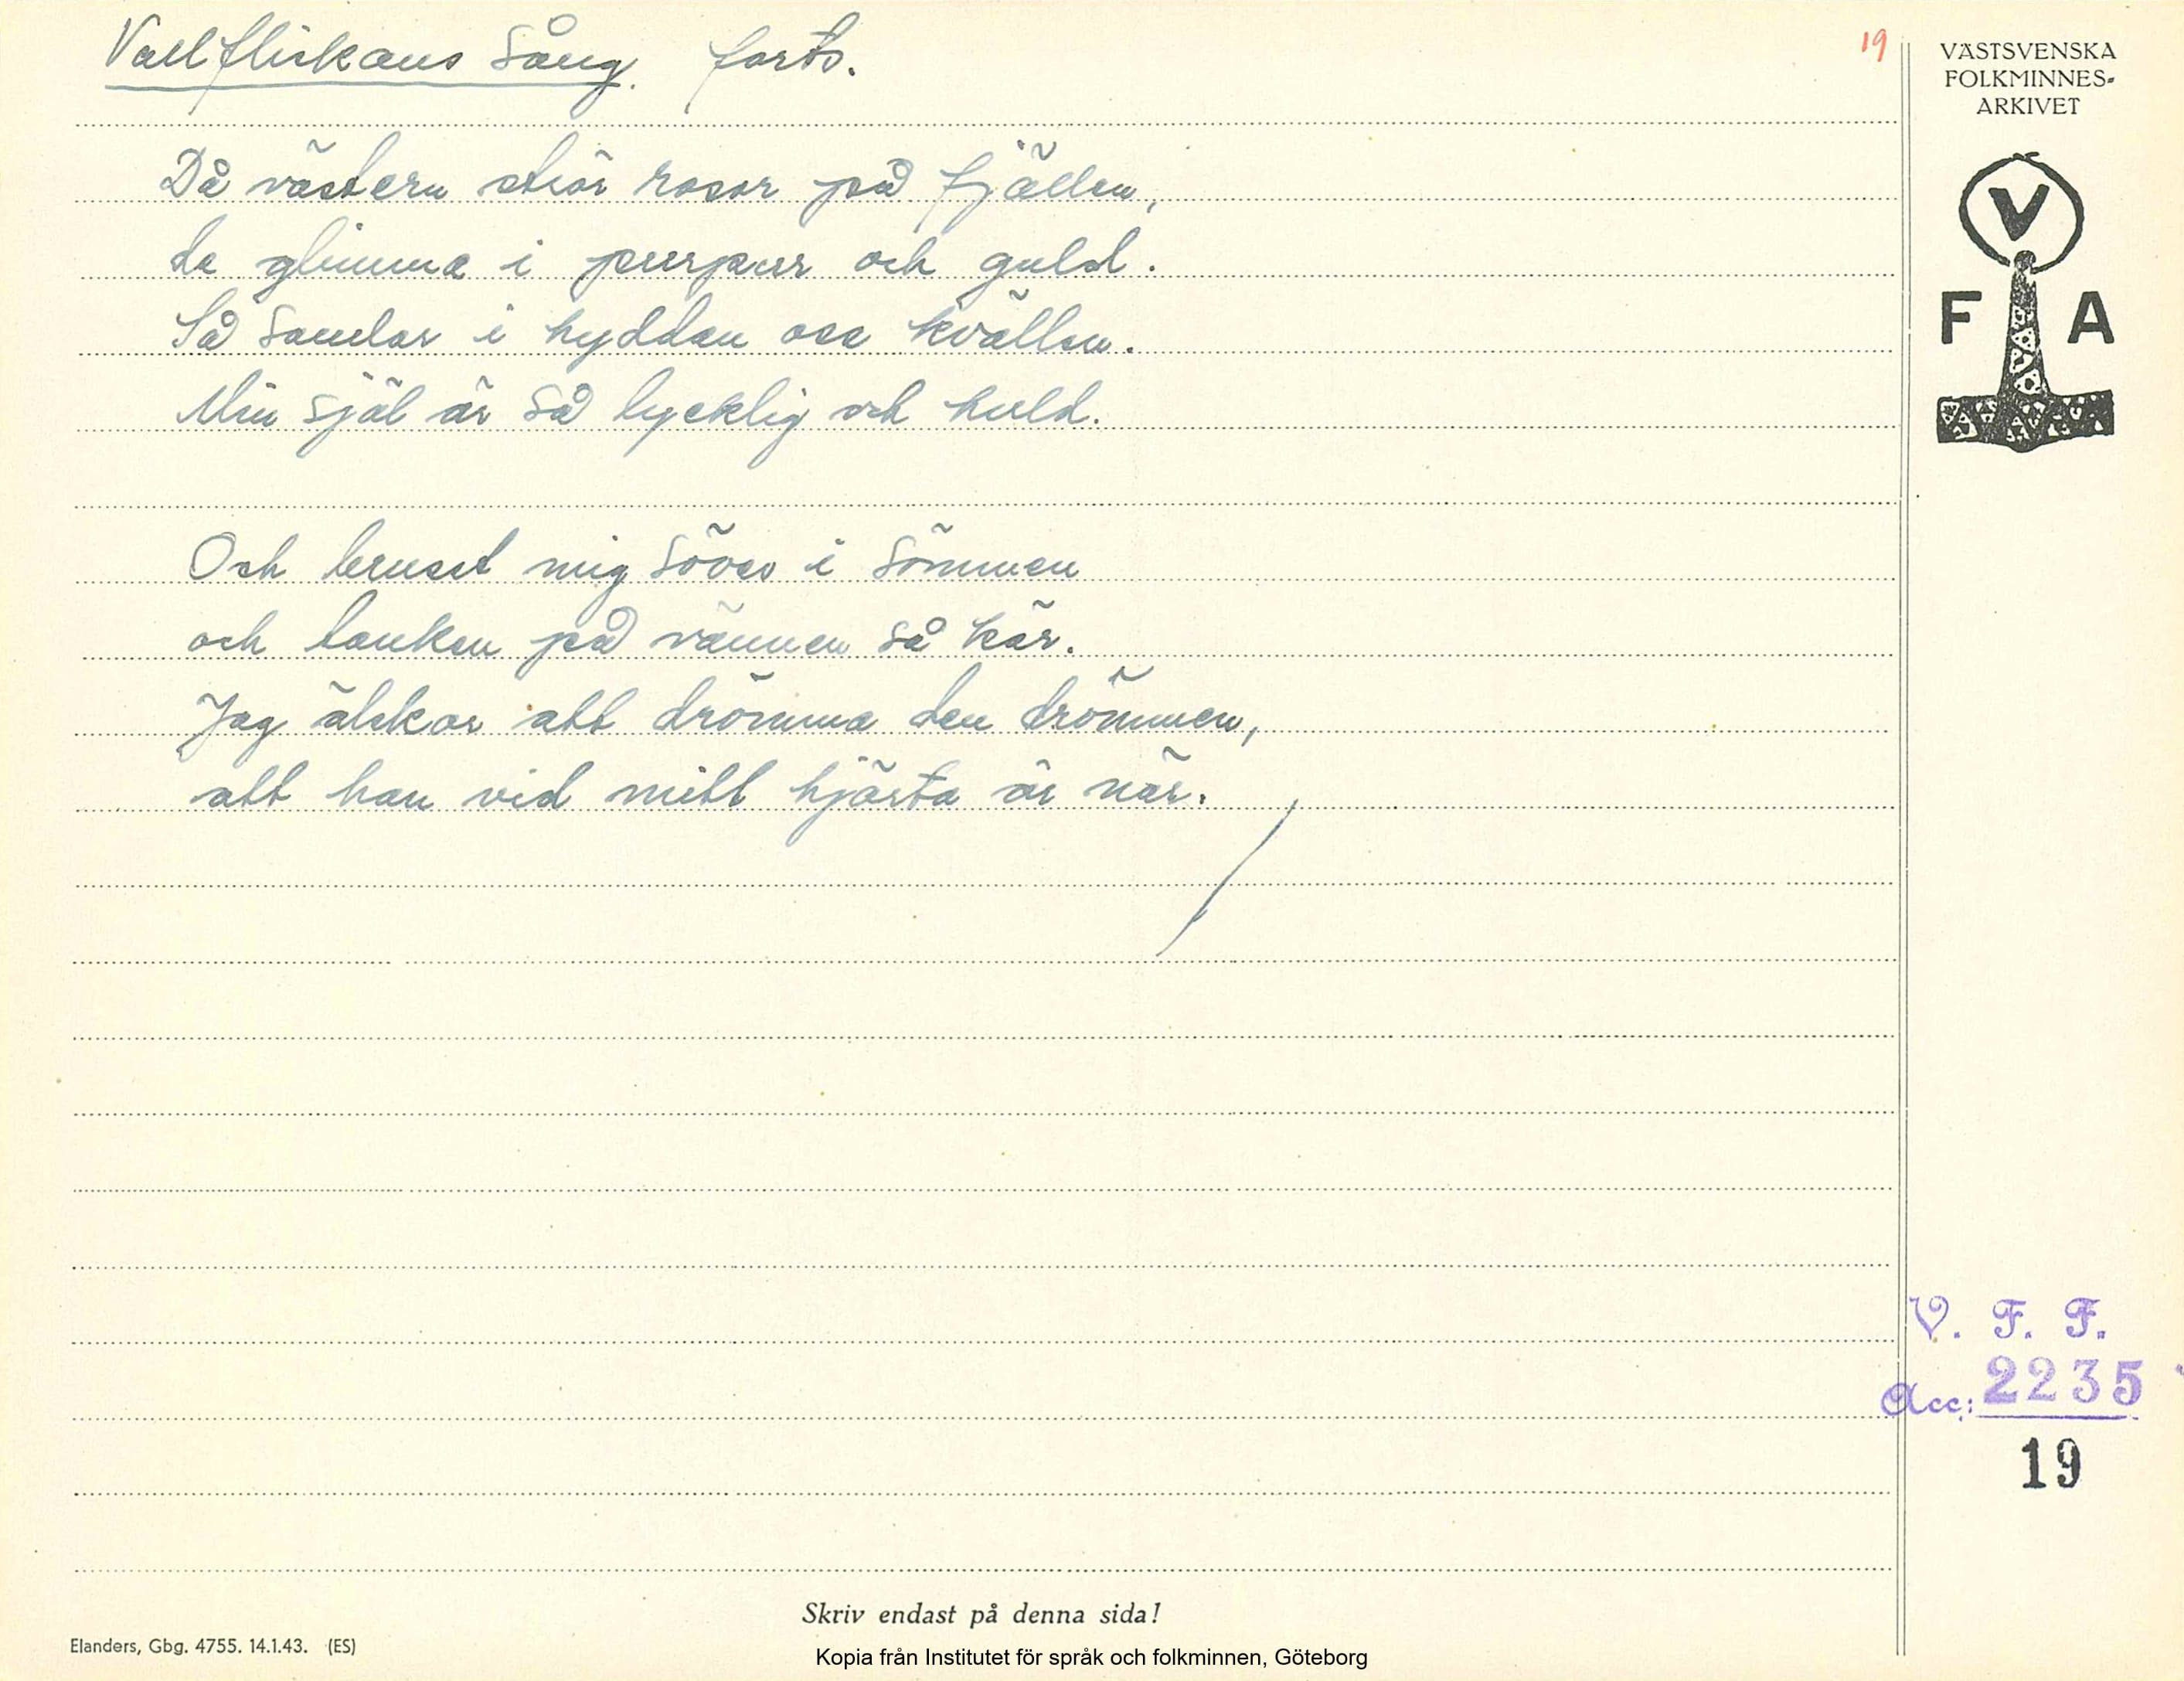 Vallflickans Sång. forts.
19
VÄSTSVENSKA
FOLKMINNES-
ARKIVET
V
F A
Då västern strör rosor på fjällen,
de glimma i purpur och guld.
Så samlar i hyddan oss kvällen.
Min själ är så lycklig och huld.
Och bruset mig söver i sömmen
och tanken på vännen så kär.
Jag älskar att drömma den drömmen,
att han vid mitt hjärta är när.
V. F. F.
Acc: 2235
19
Skriv endast på denna sida!
Elanders, Gbg. 4755. 14.1.43. (ES)
Kopia från Institutet för språk och folkminnen, Göteborg